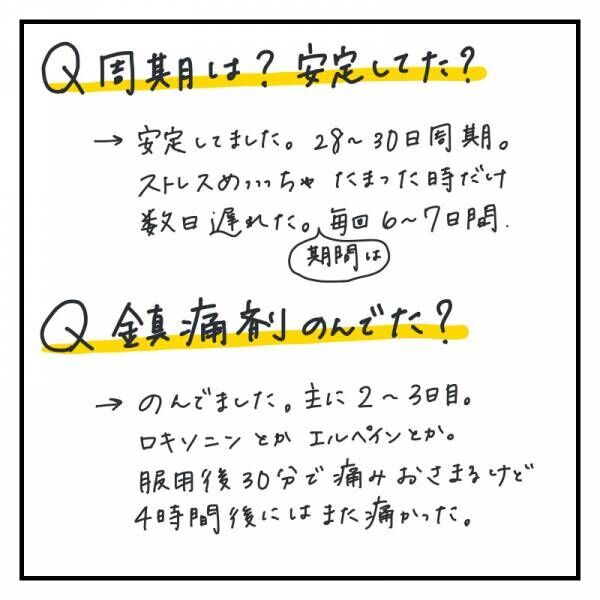 Q 周期は？安定してた？
→ 安定してました。28〜30日周期。
ストレスめっっっちゃ たまった時だけ
数日遅れた。期間は毎回6〜7日間.
Q 鎮痛剤のんでた？
→ のんでました。主に2〜3日目。
ロキソニンとか エルペインとか。
服用後30分で痛みおさまるけど
4時間後にはまた痛かった。